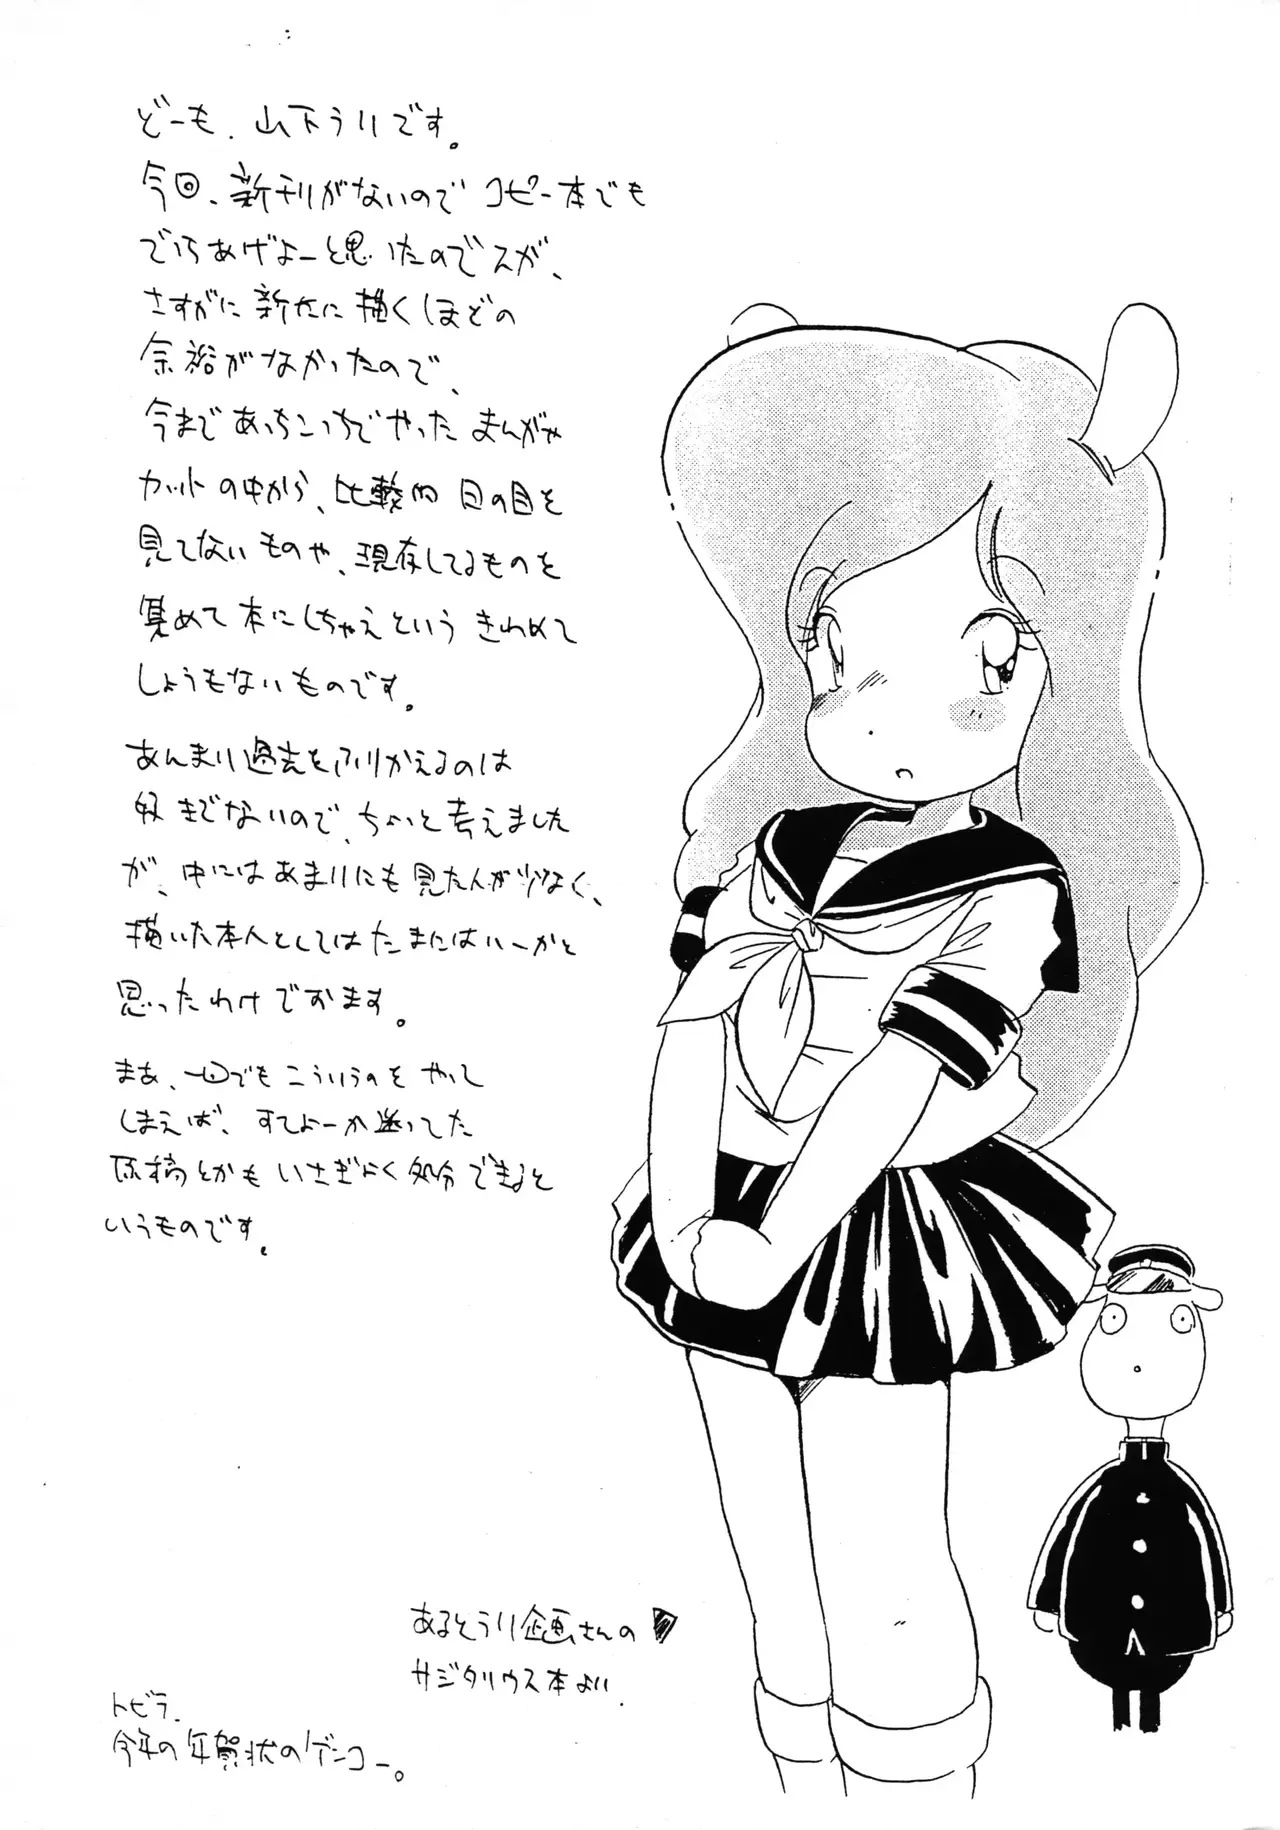 どーも、山下うりです。
今回、新刊がないのでコピー本でも
でっちあげよーと思ったのでスが、
さすがに新たに描くほどの
余裕がなかったので、
今まであっちこっちでやったまんがや
カットの中から、比較的日の目を
見てないものや、現存してるものを
集めて本にしちゃえというきわめて
しょうもないものです。
あんまり過去をふりかえるのは
好きでないので、ちょいと考えました
が、中にはあまりにも見た人が少なく、
描いた本人としてはたまにはいーかと
思ったわけでおます。
まあ、一回でもこういうのをやって
しまえば、すてよーか迷ってた
原稿とかもいさぎよく処分できると
いうものです。
あるとうり企画さんの
サジタリウス本より。
トビラ。
今年の年賀状のゲンコー。